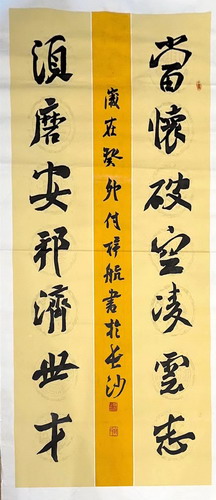 當懷破空凌雲志
須磨安邦濟世才
歲在癸卯付梓航書於長沙